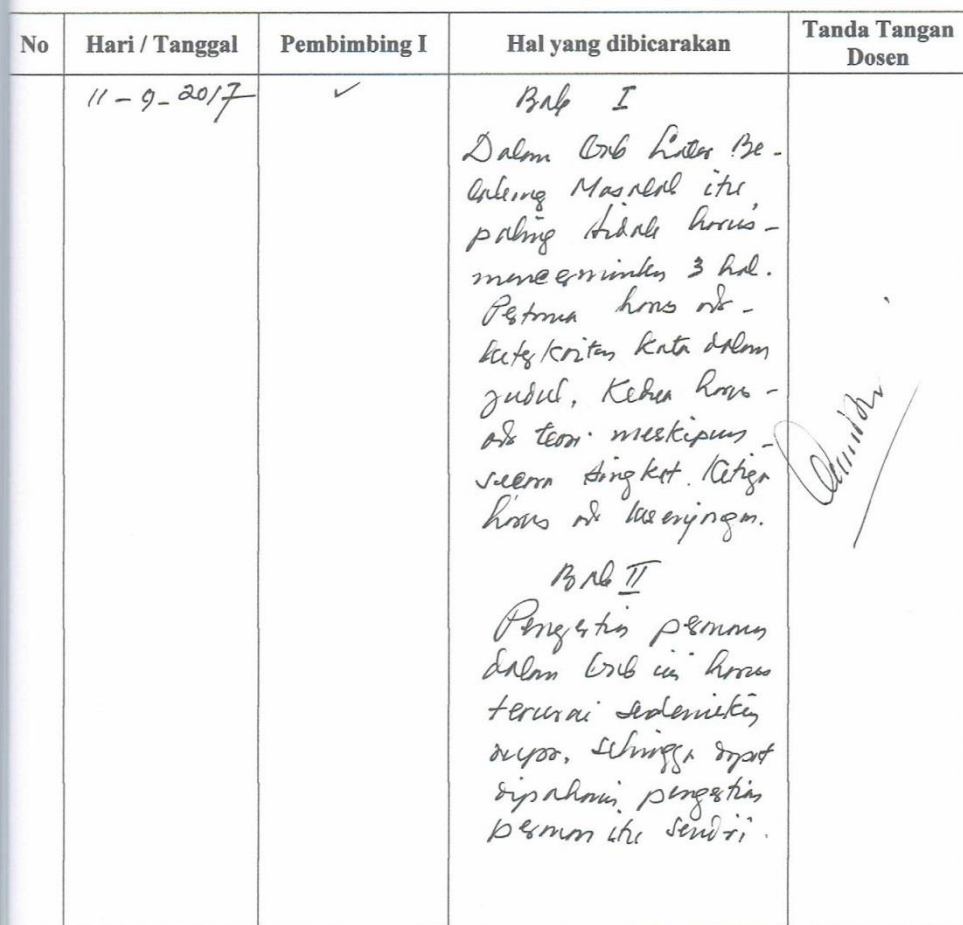 No Hari / Tanggal Pembimbing I Hal yang dibicarakan Tanda Tangan
Dosen
11-9-2017 ✓ Bab I
Dalam bab Latar Be-
lakang Masalah itu
paling tidak harus-
mencerminkan 3 hal.
Pertama harus ada-
keterkaitan kata dalam
judul, Kedua harus-
ada teori meskipun-
secara singkat. Ketiga
harus ada kesenjangan.
Bab II
Pengertian peranan
dalam bab ini harus
terurai sedemikian
rupa, sehingga dapat
dipahami pengertian
peranan itu sendiri.